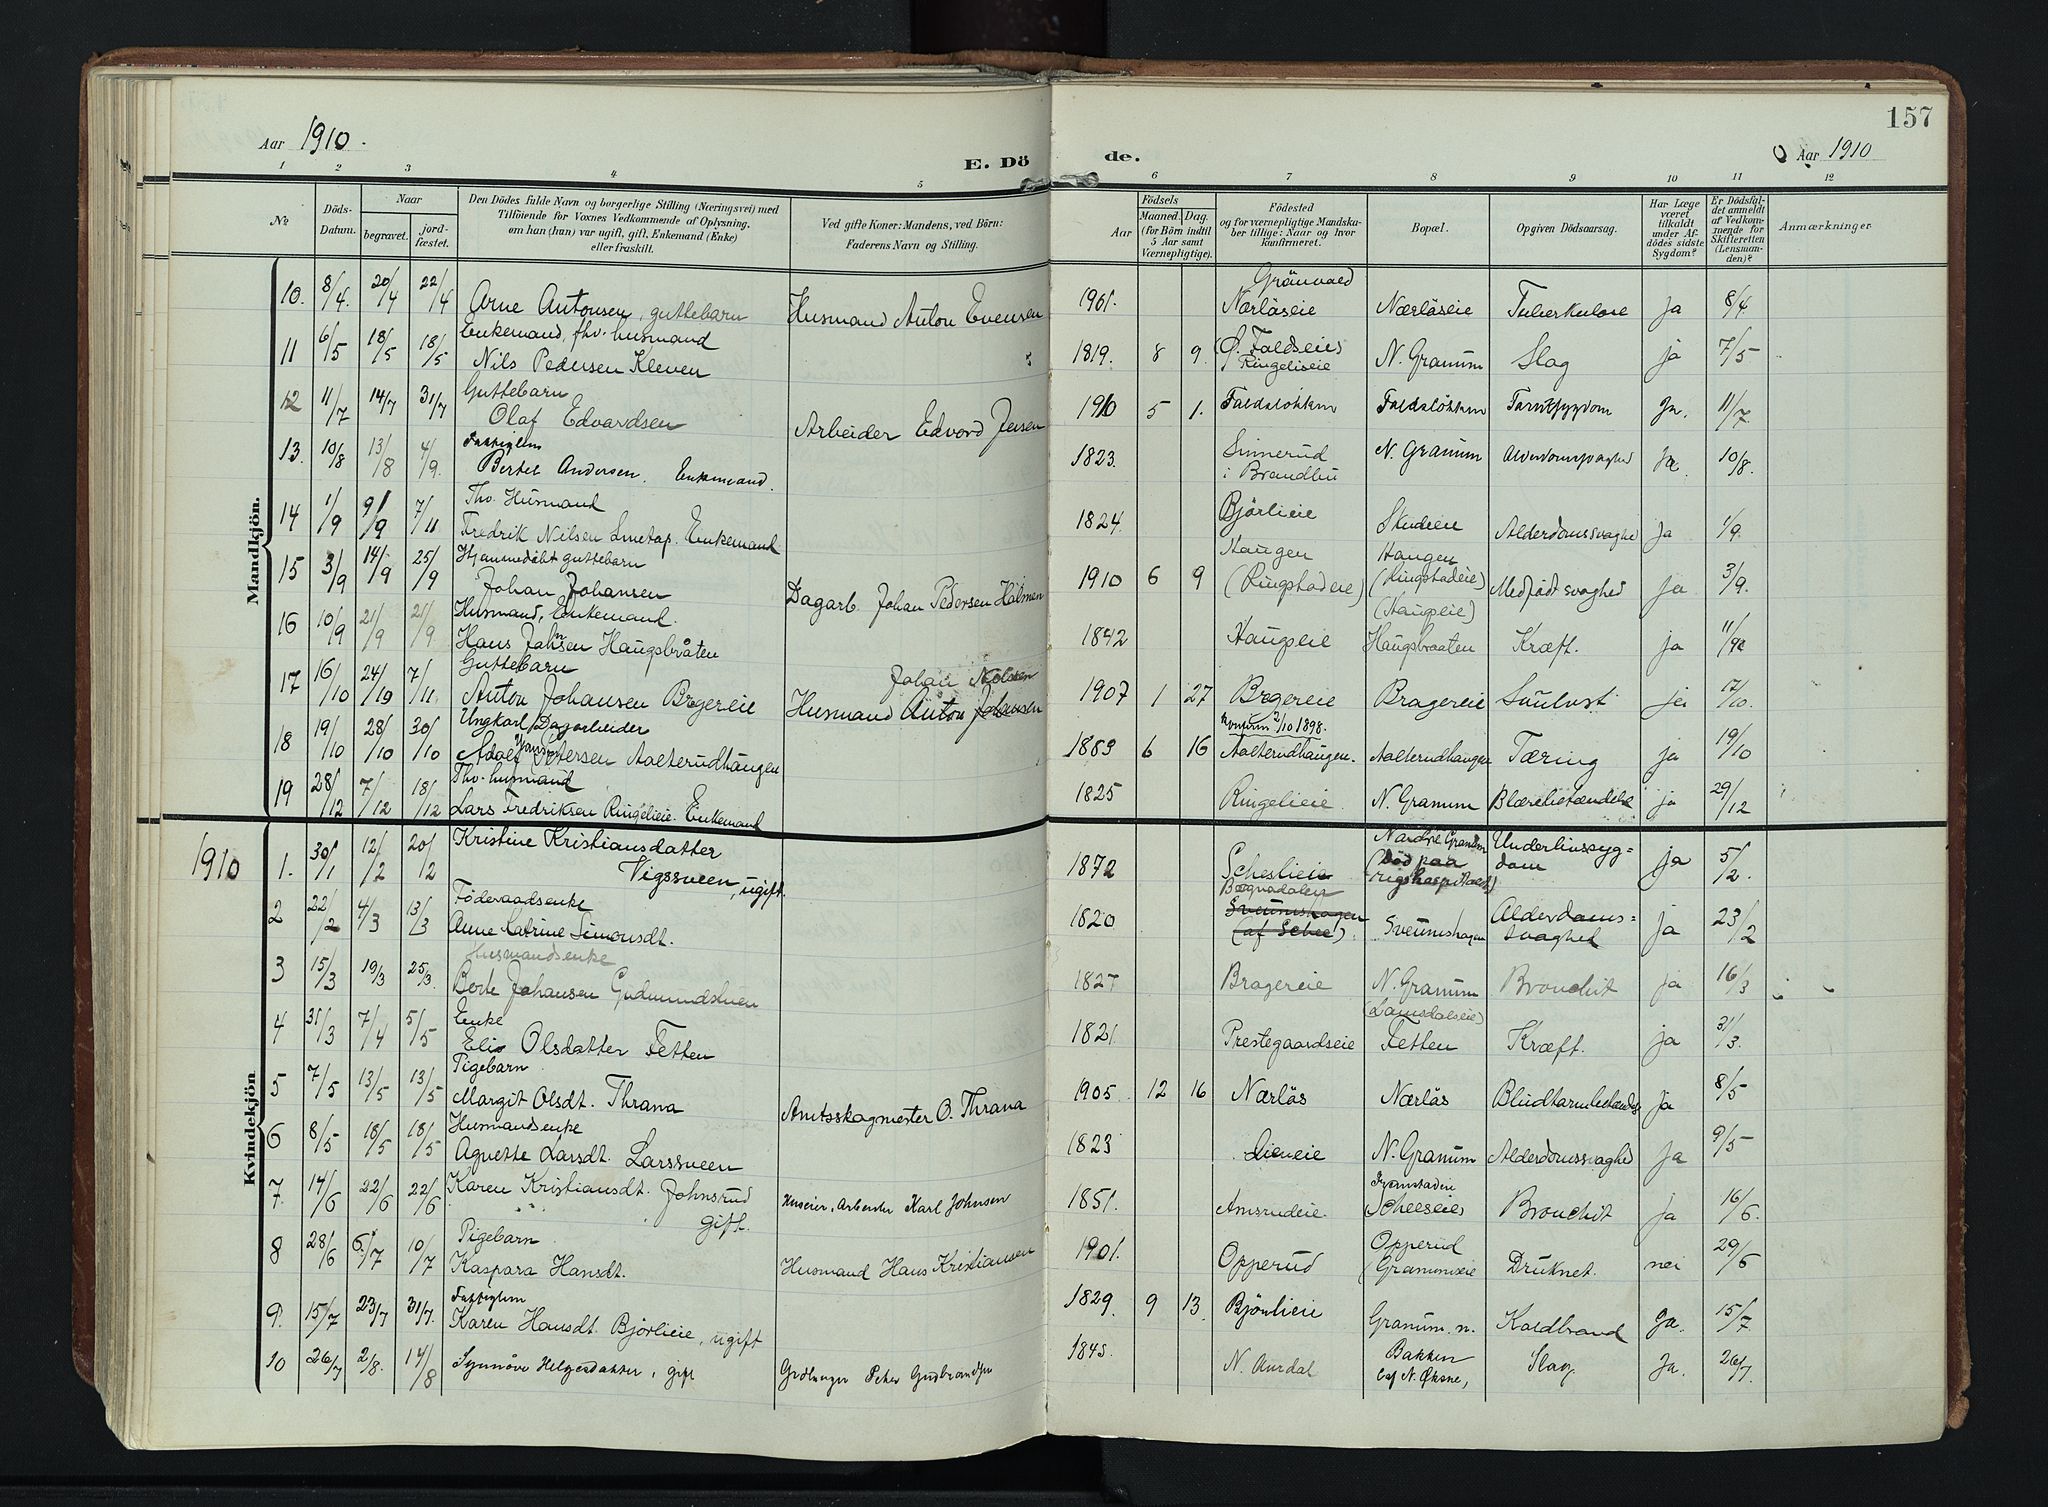 157
Aar 1910.
E. Dö
de.
Aar 1910
1 2 3 4 5 6 7 8 9 10 11 12
№
Döds-
Datum.
Naar
begravet.
jord-
fæstet.
Den Dödes fulde Navn og borgerlige Stilling (Næringsvei) med
Tilföiende for Voxnes Vedkommende af Oplysning,
om han (hun) var ugift, gift, Enkemand (Enke)
eller fraskilt.
Ved gifte Koner: Mandens, ved Börn:
Faderens Navn og Stilling.
Födsels
Aar
Maaned. Dag.
(for Börn indtil
5 Aar samt
Værnepligtige).
Födested
og for værnepligtige Mandska-
ber tillige: Naar og hvor
konfirmeret.
Bopæl.
Opgiven Dödsaarsag.
Har Læge
været
tilkaldt
under Af-
dödes sidste
Sygdom?
Er Dödsfal-
det anmeldt
af Vedkom-
mende for
Skifteretten
(Lensman-
den)?
Anmærkninger
Mandkjön.
Grönvold
10. 8/4. 20/4 22/4 Arne Antonsen, guttebarn Husmand Anton Evensen 1901. Nærlöseie Nærlöseie Tuberkulose Ja 8/4
Enkemand, fhv. husmand
11 6/5 18/5 18/5 Nils Pedersen Kleven 1819. 8 9. (Ö. Faldseie) Ringelieie N. Granum Slag ja 7/5
Guttebarn
12 11/7 14/7 31/7 Olaf Edvardsen Arbeider Edvard Jensen 1910 5 1. Faldslökken Faldslökken Tarmsygdom Ja. 11/7
Fattiglem
13. 10/8 13/8 4/9. Bertel Andersen, Enkemand. 1823. Sinnerud i Brandbu N. Granum Alderdomssvaghed Ja 10/8.
Fhv. Husmand
14 1/9 9/9 7/11 Fredrik Nilsen, Enkemand 1824. Björlieie Skudeie Alderdomssvaghed Ja 1/9.
Hjemmedöbt guttebarn
15 3/9 14/9 25/9 Johan Johansen Dagarb. Johan Pedersen Holmen 1910 6 9 Haugen (Ringstadeie) Haugen (Ringstadeie) Medfödt svaghed ja 3/9.
Husmand, Enkemand.
16 10/9 21/9 21/9. Hans Johnsen Haugsbråten 1842 Haugseie (Haugseie) Haugsbraaten Kræft. ja
Guttebarn
Johan Nilsen
17 16/10 24/10 7/11. Anton Johansen Bragereie Husmand Anton Johansen 1907 1 27 Bragereie Bragereie ja 17/10.
Ungkarl, Dagarbeider
18 19/10 28/10 30/10 Adolf Petersen Aalterudhaugen 1883 6 16 Konfirm 2/10 1898. Aalterudhaugen. Aalterudhaugen Tæring ja 19/10
Fhv. husmand
19 28/12 7/12 18/12 Lars Fredriksen Ringelieie. Enkemand 1825 Ringelieie N. Granum Blærebetændelse ja 29/12
Kvindekjön
1910 1. 30/1 12/2 20/12 Kristine Kristiansdatter
Vigssveen, ugift. 1872 Scheslieie Nordre Granum (död paa rigshospitalet) Underlivssyg-
dom ja 5/2.
Föderaadsenke
2 22/2 4/3 13/3 Anne Katrine Simonsdt. 1820 Bagnadalen Sveumshagen (af Schee) Sveumshagen Alderdoms-
svaghed ja 23/2
Husmandsenke
3 15/3 19/3 25/3. Berte Johansen Gudmundstuen 1827 Bragereie N. Granum Bronchit ja 16/3
Enke
4 31/3 7/4 5/5 Elis Olsdatter Fetten 1821. Prestegaardseie (Lomsdalseie) Fetten Kræft. ja 31/3.
Pigebarn
5 7/5 13/5 13/5 Margit Olsdt. Thrana Amtsskogmester O. Thrana 1905 12 16 Nærlös Nærlös Blindtarmbetændelse ja 8/5
Husmandsenke
6 8/5 18/5 18/5 Agnette Larsdt. Larssveen 1823 Lieneie N. Granum Alderdomssvaghed Ja 9/5
7. 14/6 22/6 22/6 Karen Kristiansdt. Johnsrud
gift. Huseier, Arbeider Karl Johnsen 1851. Amsrudeie. (Scheeseie) Bronchit Ja 16/6.
Pigebarn
8 28/6 6/7 10/7 Kaspara Hansdt. Husmand Hans Kristiansen 1901. Opperud Opperud (Granumseie Druknet. nei 29/6
Fattiglem
9. 15/7 23/7 31/7. Karen Hansdt. Björlieie, ugift 1829. 9 13. Björlieie Granum, n. Koldbrand Ja. 15/7
10 26/7 2/8. 14/8 Synnöve Helgesdatter, gift Peter Gudbrandsen 1845. N. Aurdal Bakken af N. Öksne, Slag Ja. 26/7.